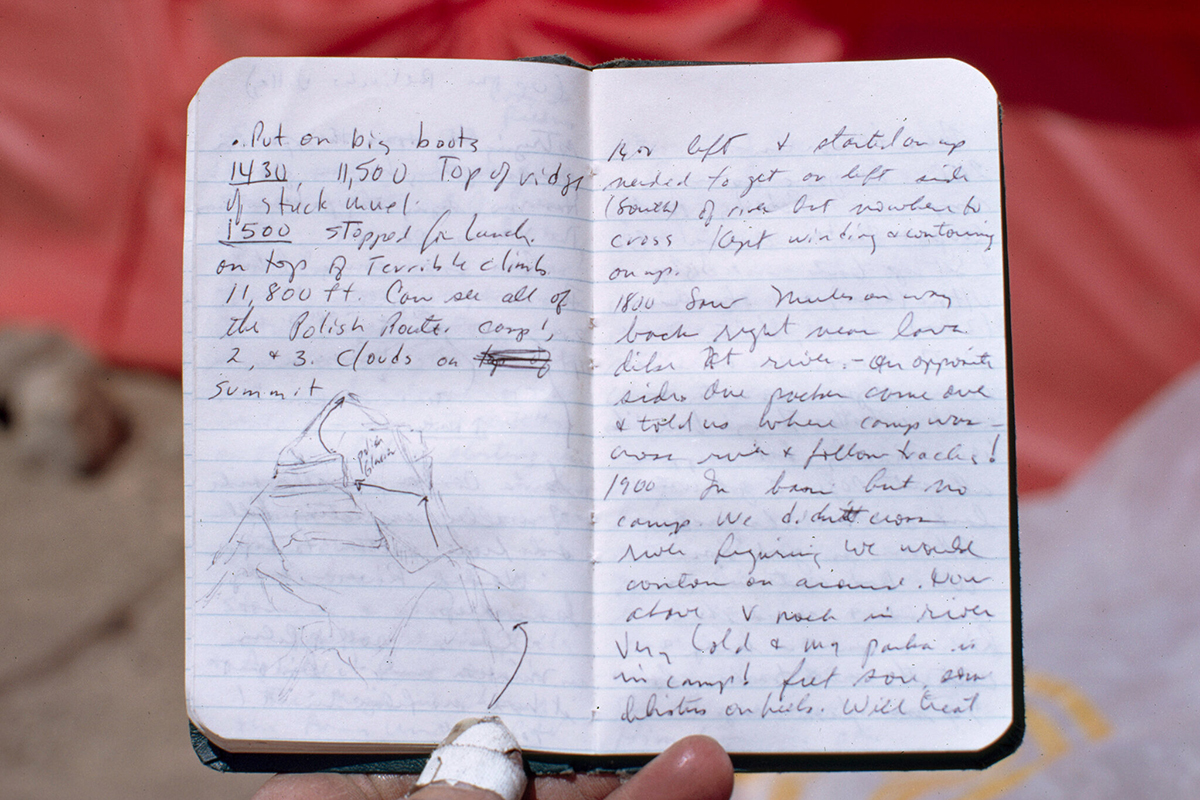 • Put on big boots
1430 11,500 Top of ridge
of stuck muel.
1500 stopped for Lunch.
on top of Terrible climb.
11,800 ft. Can see all of
the Polish Route. camp 1,
2, & 3. Clouds on top of
summit
polish
Glacier
left & started on up
needed to get on left side
(South) of river but nowhere to
cross Kept winding & contouring
on up.
1800 Saw Mules on way
back right near lava
dike at river - on opposite
side. One packer came over
& told us where camp was -
cross river & follow tracks!
1900 In basin but no
camp We didn't cross
river figuring we would
contour on around. Now
above V rock in river
Very Cold & my parka is
in camp! feet sore, some
blisters on heels. Will treat